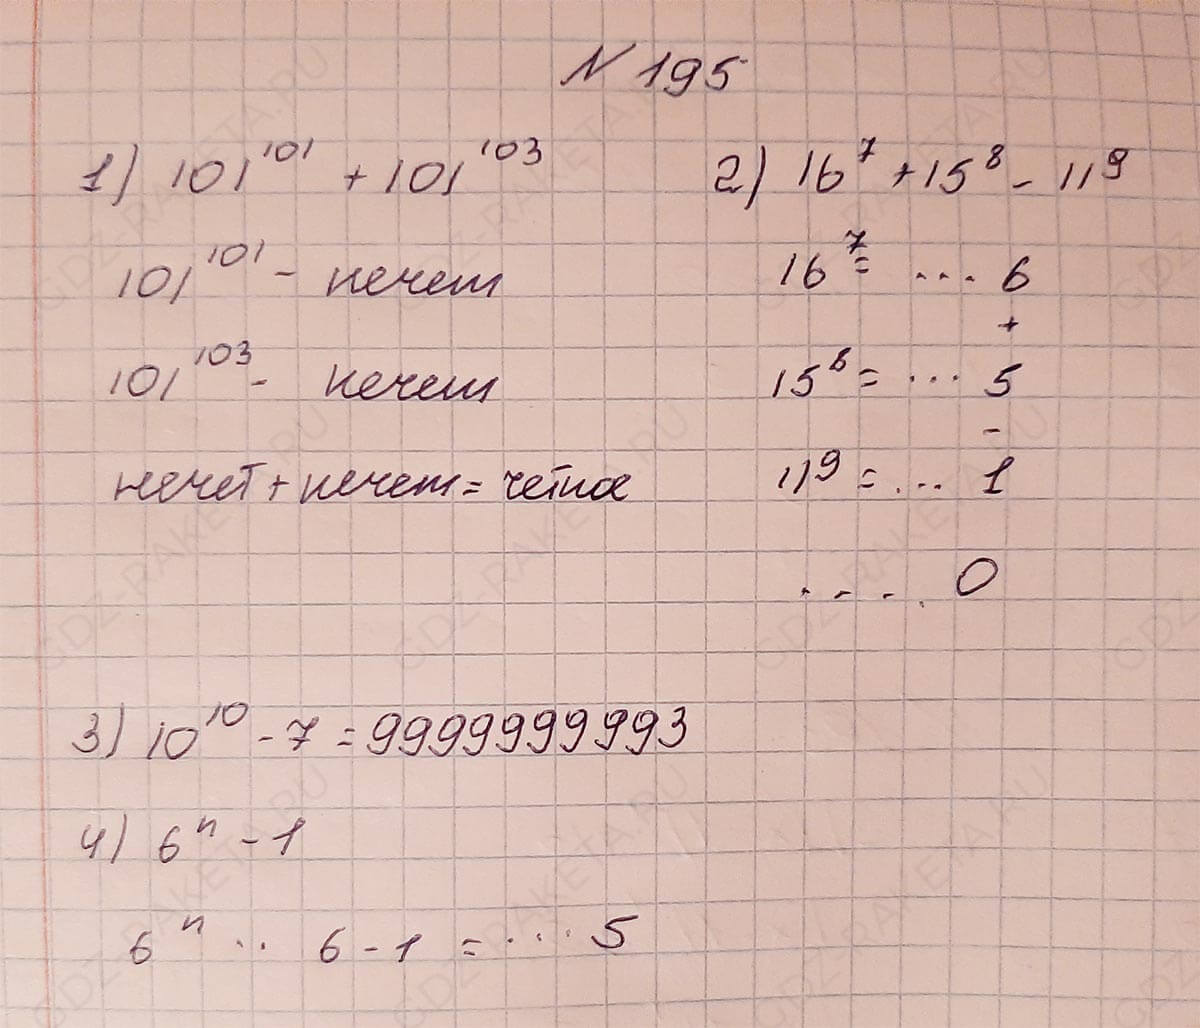 N 195
1) 101^101 + 101^103
101^101 - нечет
101^103 - нечет
нечет + нечет = четное
2) 16^7 + 15^8 - 11^9
16^7 = ... 6
+
15^8 = ... 5
-
11^9 = ... 1
.... 0
3) 10^10 - 7 = 9999999993
4) 6^n - 1
6^n .. 6 - 1 = ... 5
GDZ-RAKETA.RU